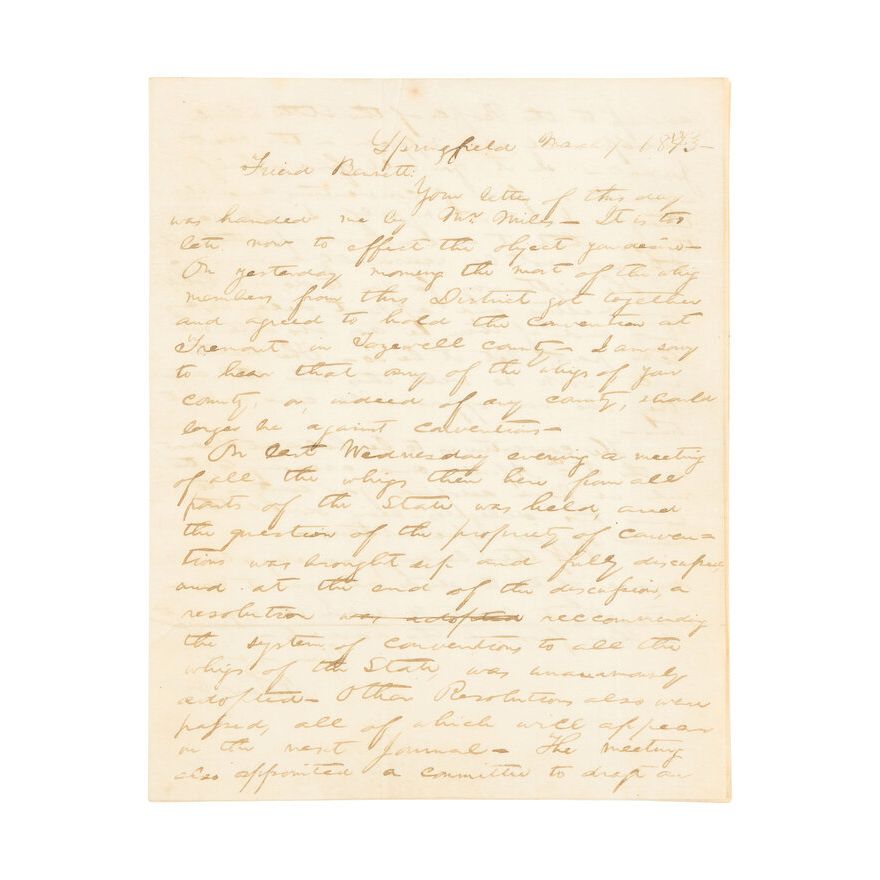 Springfield March 7- 1843-
Friend Bennett:
Your letter of this day
was handed me by Mr. Miles- It is too
late now to effect the object you desire-
On yesterday morning the most of the whig
members from this District got together
and agreed to hold the convention at
Tremont in Tazewell county- I am sory
to hear that any of the whigs of your
county, or, indeed of any county, should
longer be against conventions-
On last Wednesday evening a meeting
of all the whigs then here from all
parts of the State was held, and
the question of the propriety of conven=
tions was brought up and fully discussed
and at the end of the discussion, a
resolution was adopted reccommending
the system of conventions to all the
whigs of the State, was unanimously
adopted- Other Resolutions also were
passed, all of which will appear
in the next Journal- The meeting
also appointed a committee to draft an